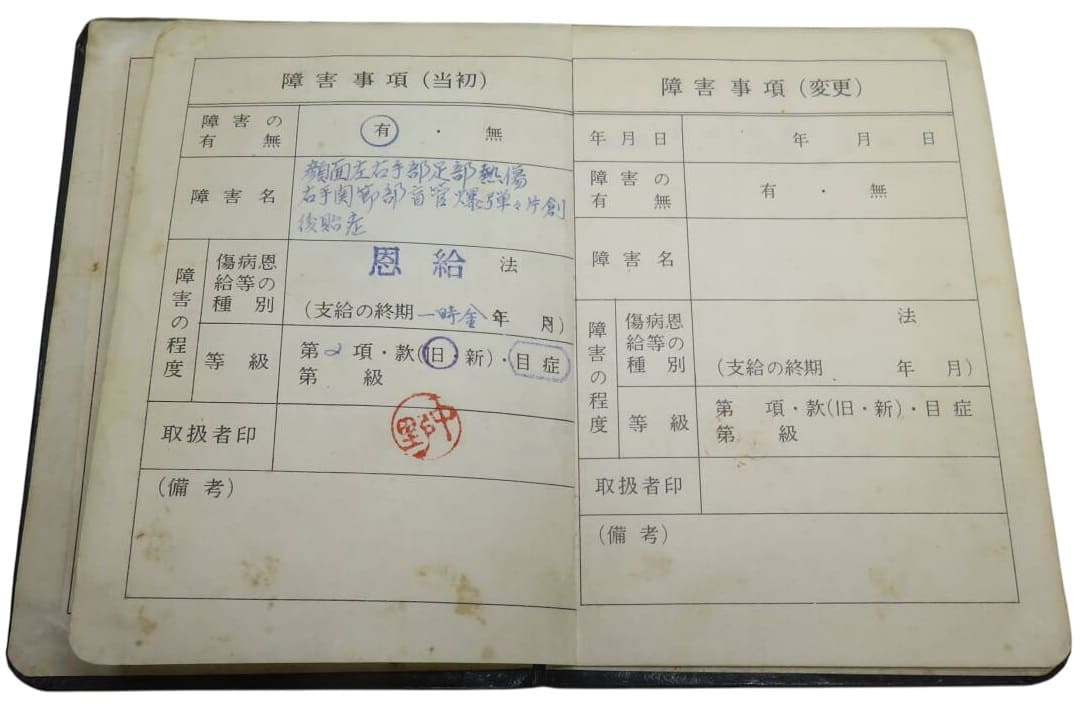 障害事項(当初)
障害の
有無
有・無
障害名
顔面左右手部足部熱傷
右手関節部盲管爆弾々片創
後貽症
障害の程度
傷病恩
給等の
種別
恩給 法
(支給の終期 一時金 年 月)
等級
第2項・款(旧・新)・目症
第 級
取扱者印
中野
(備考)
障害事項(変更)
年月日
年 月 日
障害の
有無
有・無
障害名
障害の程度
傷病恩
給等の
種別
法
(支給の終期 年 月)
等級
第 項・款(旧・新)・目症
第 級
取扱者印
(備考)